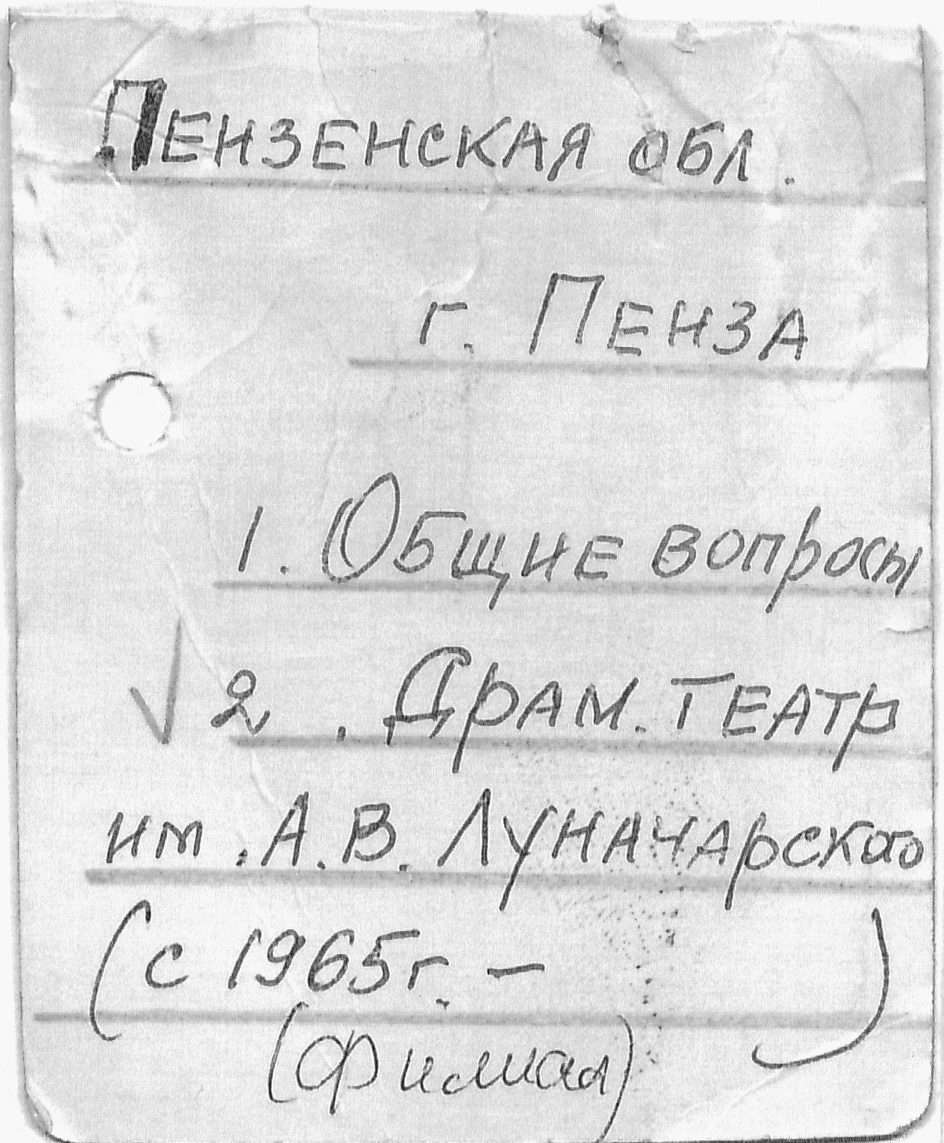 Пензенская обл.
г. Пенза
1. Общие вопросы
√ 2. Драм. театр
им. А.В. Луначарского
(с 1965г. — )
(филиал)